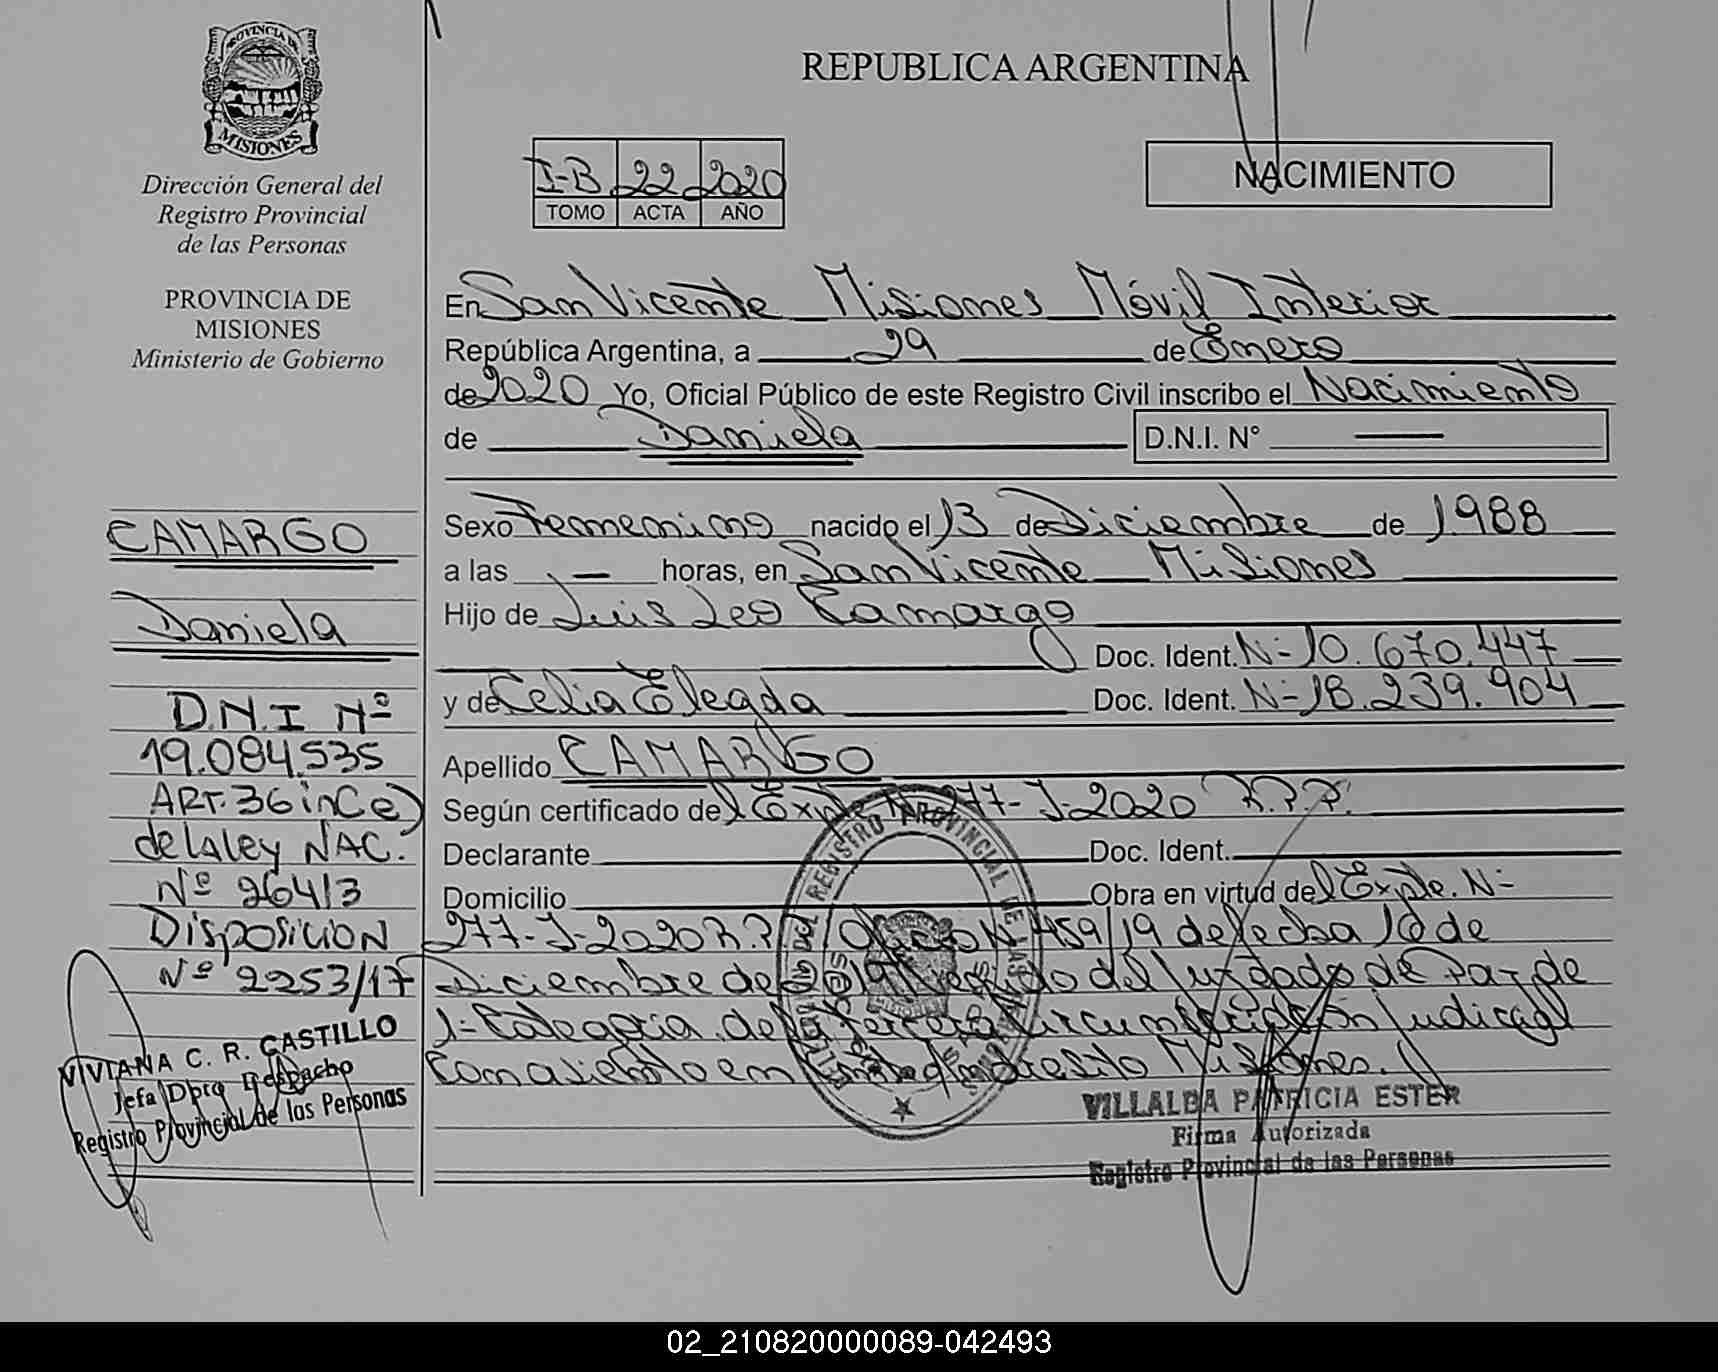 PROVINCIA DE
MISIONES
Dirección General del
Registro Provincial
de las Personas
PROVINCIA DE
MISIONES
Ministerio de Gobierno
CAMARGO
Daniela
D.N.I Nº
19.084.535
ART. 36 inC e)
de la ley NAC.
Nº 26413
Disposicion
Nº 2253/17
VIVIANA C. R. CASTILLO
Jefa Dpto Despacho
Registro Provincial de las Personas
REPUBLICA ARGENTINA
I-B 22 2020
TOMO ACTA AÑO
NACIMIENTO
En San Vicente Misiones Móvil Interior
República Argentina, a 29 de Enero
de 2020 Yo, Oficial Público de este Registro Civil inscribo el Nacimiento
de Daniela D.N.I. N° —
Sexo Femenino nacido el 13 de Diciembre de 1.988
a las — horas, en San Vicente Misiones
Hijo de Luis Leo Camargo
Doc. Ident. N- 10.670.447
y de Celia Elegda Doc. Ident. N- 18.239.904
Apellido CAMARGO
Según certificado del Expte N 277-J-2020 R.P.P.
Declarante Doc. Ident.
Domicilio Obra en virtud del Expte. N-
277-J-2020 R.P. Oficio N 459/19 de fecha 16 de
Diciembre de del Juzgado de Paz de
1- Categoria de la Tercera Circunscripción judicial
Con asiento en Misiones.
REGISTRO PROVINCIAL DE LAS PERSONAS
VILLALBA PATRICIA ESTER
Firma Autorizada
Registro Provincial de las Personas
02_210820000089-042493